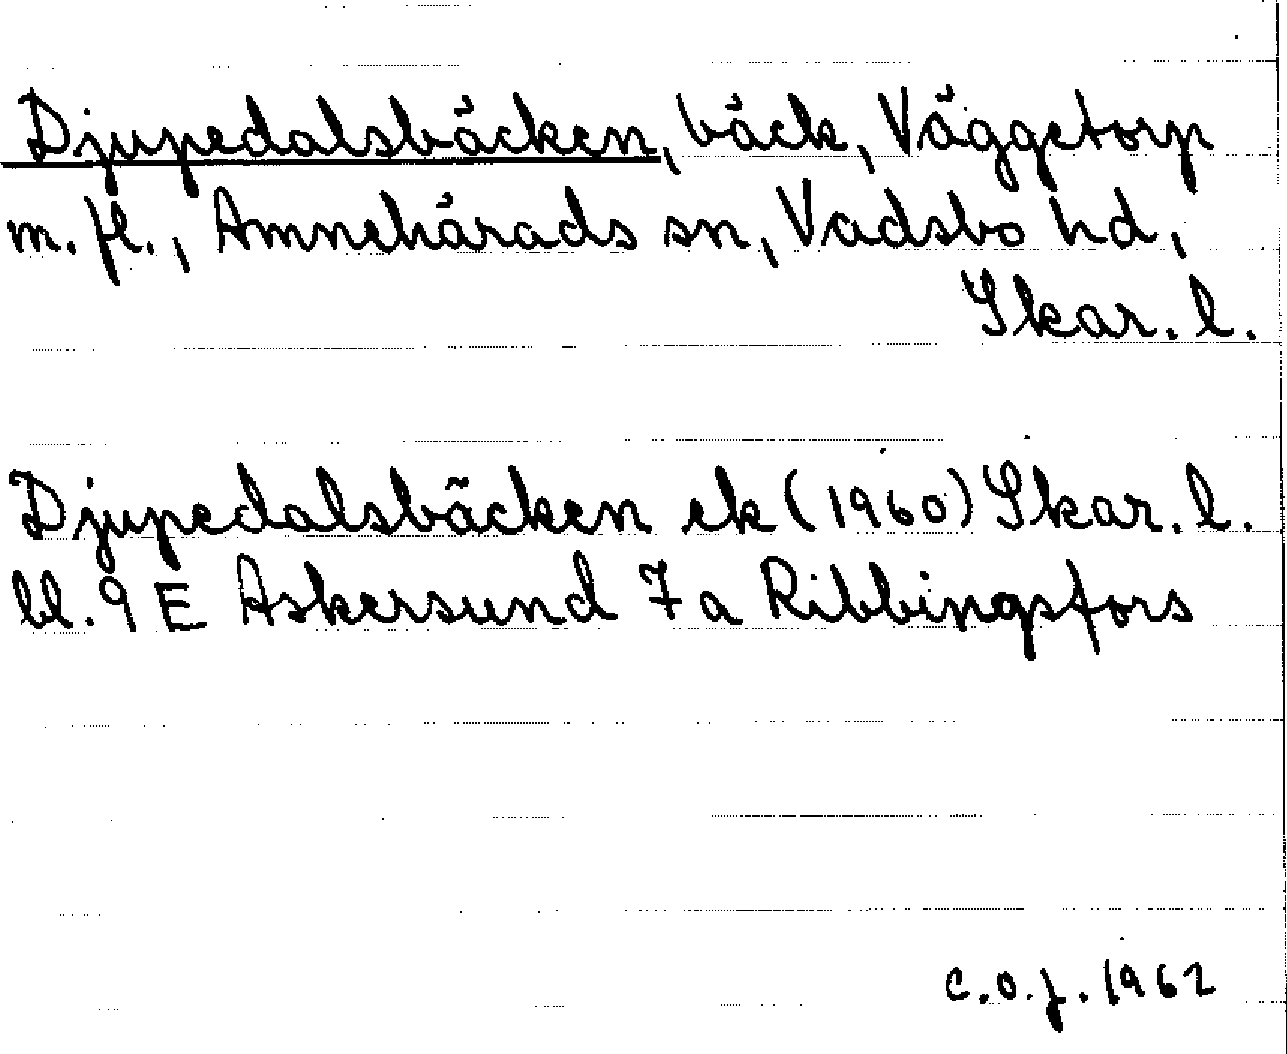 Djupedalsbäcken, bäck, Väggetorp
m. fl., Amnehärads sn, Vadsbo hd,
Skar. l.
Djupedalsbäcken ek (1960) Skar. l.
bl. 9 E Askersund 7 a Ribbingsfors
C.O.J. 1962